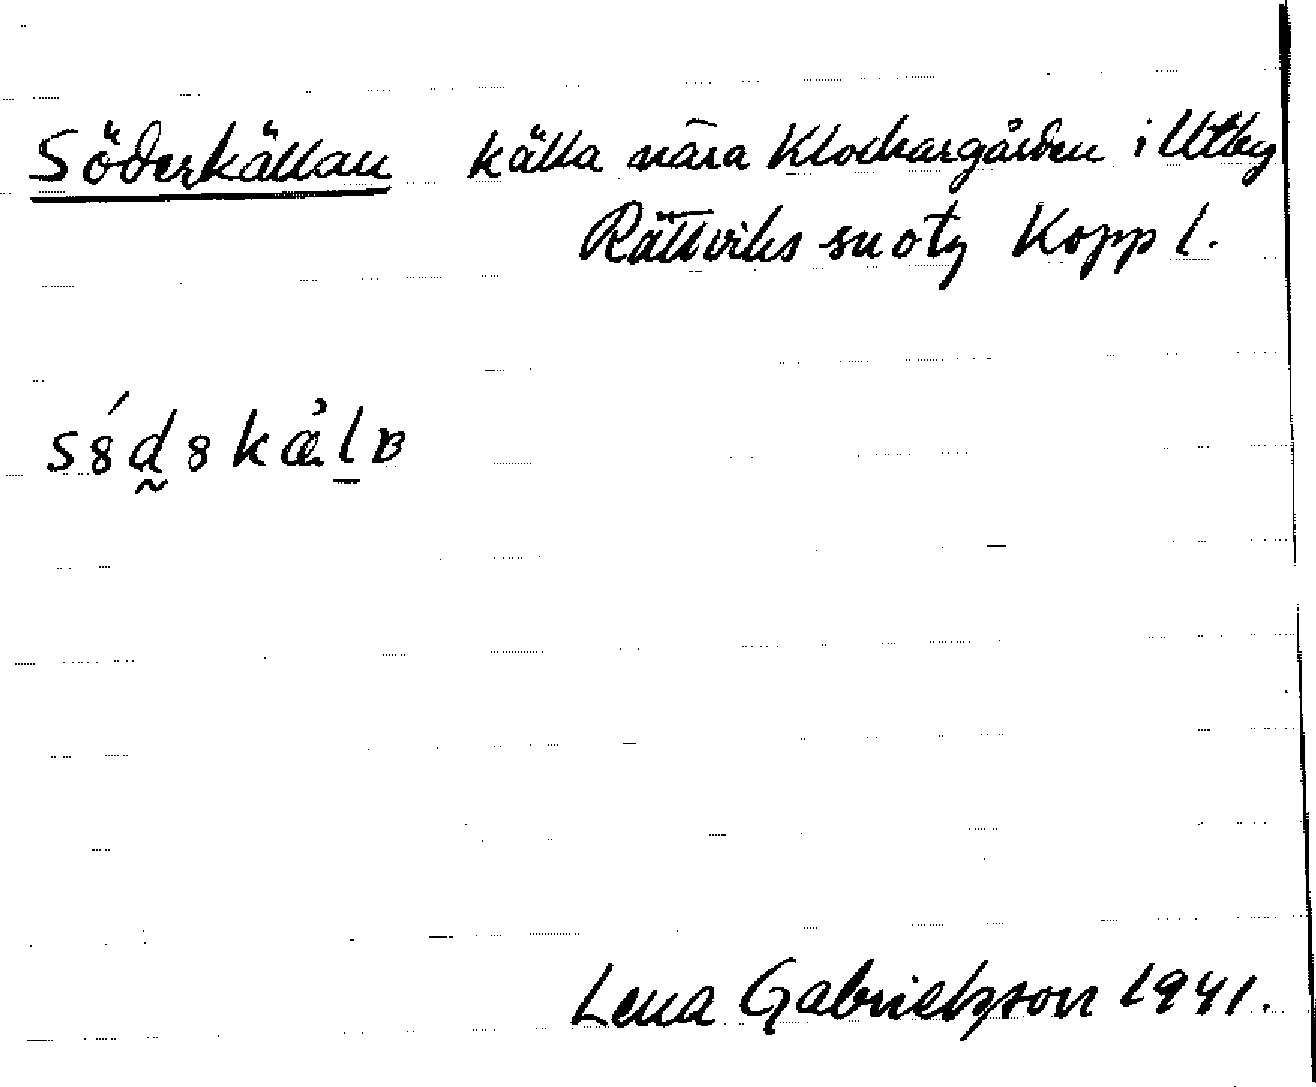 Söderkällan källa nära Klockargården i Utby
Rättviks snotg Kopp l.
s8́d̰8kæ̉l̠ʙ
Lena Gabrielsson 1941.